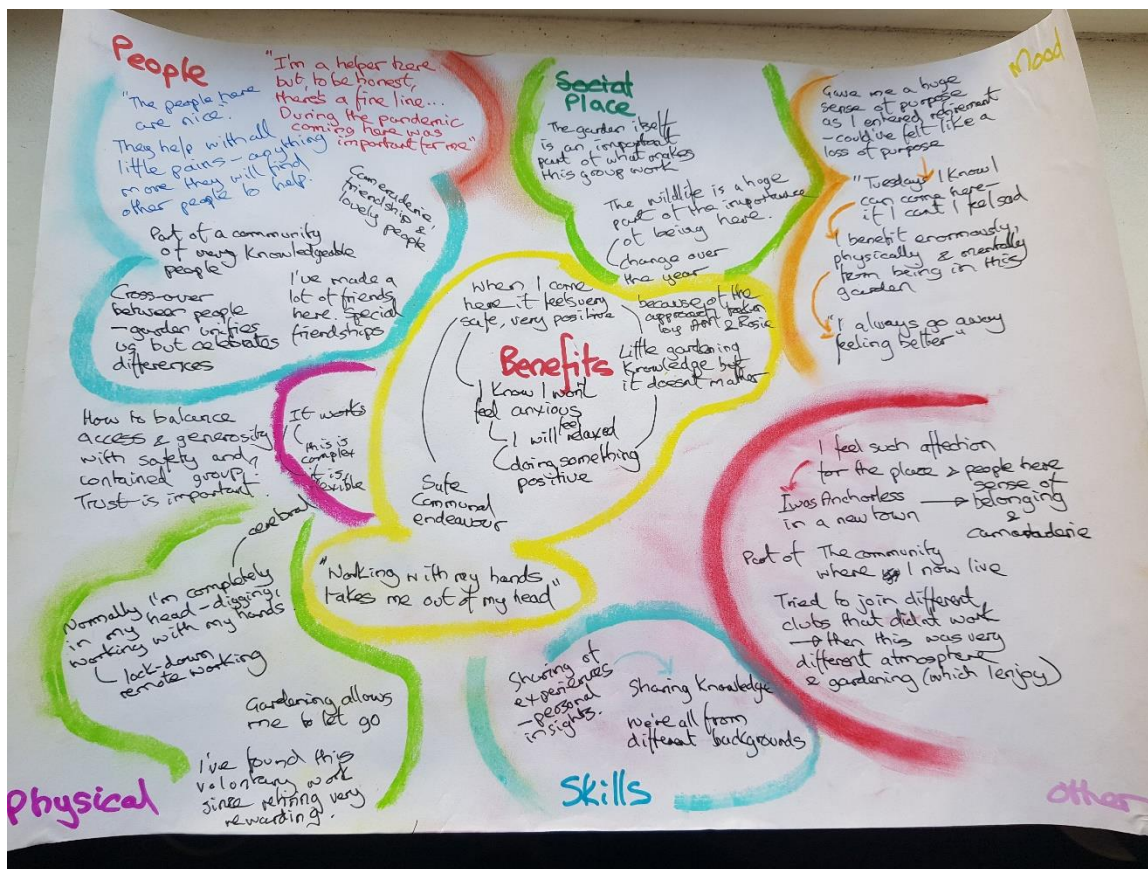 People
"I'm a helper here
but, to be honest,
there's a fine line...
During the pandemic
coming here was
important for me"
"The people here
are nice."
They help with all
little pains - anything
more they will find
other people to help.
Camaraderie
friendship &
lovely people
Part of a community
of very knowledgeable
people
Cross-over
between people
- garden unifies
us but celebrates
differences
I've made a
lot of friends
here. Special
friendships
Social
Place
The garden itself
is an important
part of what makes
this group work
The wildlife is a huge
part of the importance
of being here.
change over
the year
Mood
Gave me a huge
sense of purpose
as I entered retirement
- could've felt like a
loss of purpose
"Tuesdays I know I
can come here -
if I can't I feel sad
I benefit enormously,
physically & mentally
from being in this
garden
"I always go away
feeling better"
when I come
here it feels very
safe, very positive
because of the
approach taken
by & Rosie
Benefits
Little gardening
knowledge but
it doesn't matter
I know I won't
feel anxious
feel
I will relaxed
doing something
positive
Safe
Communal
endeavour
"Working with my hands
takes me out of my head"
How to balance
access & generosity
with safety and
contained group?
Trust is important.
It works
this is
complex
it is
flexible
cerebral
Normally I'm completely
in my head - digging,
working with my hands
lock-down
remote working
Gardening allows
me to let go
I've found this
voluntary work
since retiring very
rewarding.
Physical
Sharing of
experiences
- personal
insights.
Sharing knowledge
we're all from
different backgrounds
Skills
I feel such affection
for the place & people here
I was Anchorless
in a new town
sense of
belonging
&
camaraderie
Part of The community
where I now live
Tried to join different
clubs that didn't work
then this was very
different atmosphere
& gardening (which I enjoy)
Other